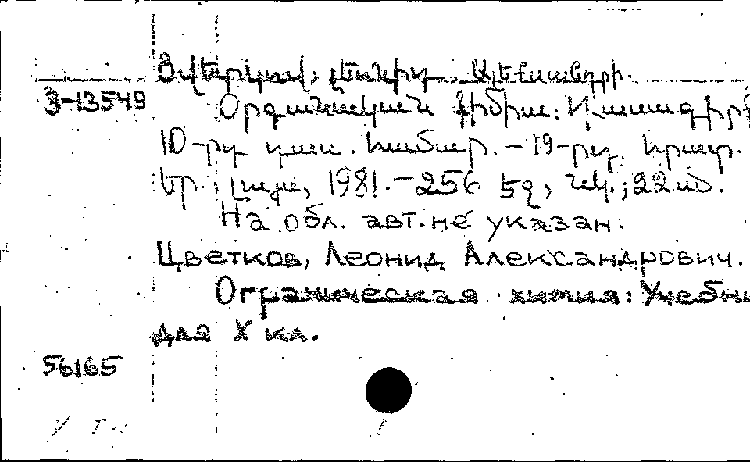 Ցվետկով, Լեոնիդ Ալեքսանդրի.
3-13549 Օրգանական քիմիա: Դասագիրք
10-րդ դաս. համար. - 19-րդ հրատ.
Եր., Լույս, 1981. - 256 էջ, նկ.; 22 սմ.
На обл. авт. не указан.
Цветков, Леонид Александрович.
Органическая химия: Учебни
для X кл.
56165